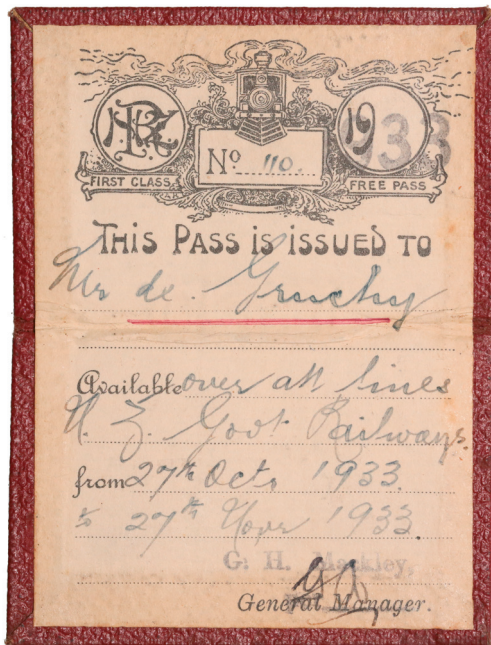 NZR
1933
No 110.
FIRST CLASS
FREE PASS
THIS PASS IS ISSUED TO
Mr de Gruchy
Available over all lines
N. Z. Govt Railways.
from 27th Octr 1933.
to 27th Novr 1933.
G. H. Mackley,
General Manager.